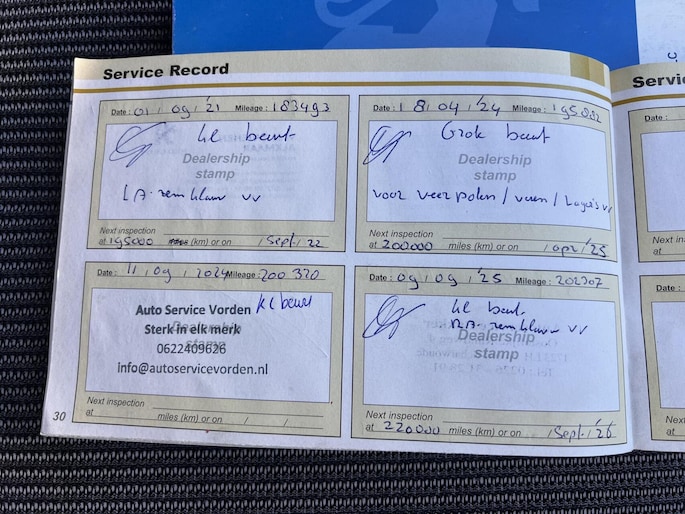 Service Record
Date : 01 / 09 / '21 Mileage : 183493
kl beurt
Dealership
stamp
LA. remklauw vv
Next inspection
at 195000 miles (km) or on / Sept / 22
Date : 18 / 04 / '24 Mileage :
Grote beurt
Dealership
stamp
voor veerpoten / veren / Lagers vv
Next inspection
at 200000 miles (km) or on / apr / '25
Date : 11 / 09 / 2024 Mileage : 200 320
Auto Service Vorden kl beurt
Sterk in elk merk
Dealership
stamp
0622409626
info@autoservicevorden.nl
Next inspection
at miles (km) or on / /
Date : 09 / 09 / '25 Mileage : 202307
kl beurt
RA. remklauw vv
Dealership
stamp
Next inspection
at 220000 miles (km) or on / Sept / '26
30
Servic
Date :
Next in
at
Date :
Next
at